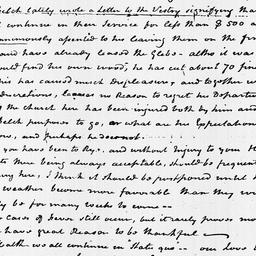 Belch lately wrote a letter to the Vestry signifying that
continue in their Service for less than $500 a
unanimously assented to his leaving them on the fir
and have already leased the Glebe - altho it was
ould find his own wood, he has cut about 70 fine
his has caused much Displeasure, and together w
derations, leaves no Reason to regret his Departu
the church here has been injured both by him and
Belch purposes to go, or what are his Expectation
ow, and perhaps he does not.
you have been to Rye, and without Injury to your H
to there being always acceptable, should be frequent
ing here, I think it should be postponed until
weather become more favorable than they are
ly be for many weeks to come --
Cases of Fever still occur, but it rarely proves mo
have great Reason to be thankful --
ealth we all continue in Statu quo -- our Love